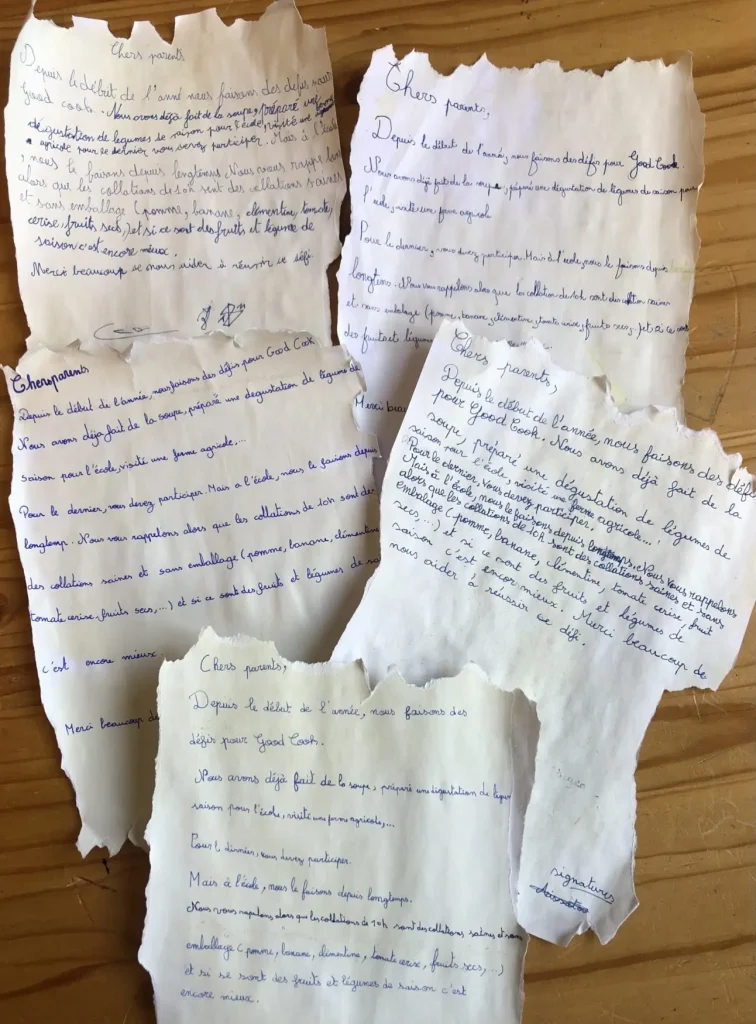 Chers parents
Depuis le début de l'anné nous faisons des defis pour
Good cook. Nous avons déjà fait de la soupe, préparé une
dégustation de legumes de saison pour l'école, visité une
agricole pour le dernier vous devez participer. Mais à l'école
, nous le favons depuis longtemps Nous vous rappelons
alors que les collations de 10h sont des collations saines
et sans emballage (pomme, banane, clémentine, tomate,
cerise, fruits secs,) et si ce sont des fruits et légume de
saison c'est encore mieux.
Merci beaucoup de nous aider à réussir ce défi.
Chers parents,
Depuis le début de l'année, nous faisons des défis pour Good Cook.
Nous avons déjà fait de la soupe, préparé une dégustation de légumes de saison pour
l'école, visite une ferme agricole
Pour le dernier, vous devez participer. Mais à l'école, nous le faisons depuis
longtems. Nous vous rappelons alors que la collation de 10h sont des collation saines
et sans embalage (pomme, banane, clémentine, tomate cerise, fruits secs, ) et si ce sont
des fruits et légumes
Merci beau
Chers parents
Depuis le début de l'année, nous faisons des défis pour Good Cook
Nous avons déjà fait de la soupe, préparé une degustation de légumes de
saison pour l'école, visité une ferme agricole,...
Pour le dernier, vous devez participer. Mais a l'école, nous le faisions depuis
longtemp. Nous vous rappelons alors que les collations de 10h sont des
des collations saines et sans emballage (pomme, banane, clémentine
tomate cerise, fruits secs,...) et si ce sont des fruits et légumes de sa
c'est encore mieux.
Merci beaucoup de
Chers parents,
Depuis le début de l'année, nous faisons des défis
pour Good Cook. Nous avons déjà fait de la
soupe, préparé une dégustation de légumes de
saison pour l'école, visite une ferme agricole...
Pour le dernier, vous devez participer.
Mais à l'école, nous le faisons depuis longtemps. Nous vous rappelons
alors que les collations de 10h sont des collations saines et sans
embalage (pomme, banane, clémentine, tomate cerise, fruit
secs,...) et si ce sont des fruits et légumes de
saison c'est encor mieux. Merci beaucoup de
nous aider à réussir ce défi.
signatures
Chers parents,
Depuis le début de l'année, nous faisons des
défis pour Good Cook.
Nous avons déjà fait de la soupe, préparé une dégustation de légum
saison pour l'école, visite une ferme agricole,...
Pour l dernier, vous devez participer
Mais à l'école, nous le faisons depuis longtemps.
Nous vous rapelons, alors que les collations de 10h sont des collations saines et sans
emballage (pomme, banane, clémentine, tomate cerise, fruits secs,...)
et si se sont des fruits et légumes de saison c'est
encore mieux.